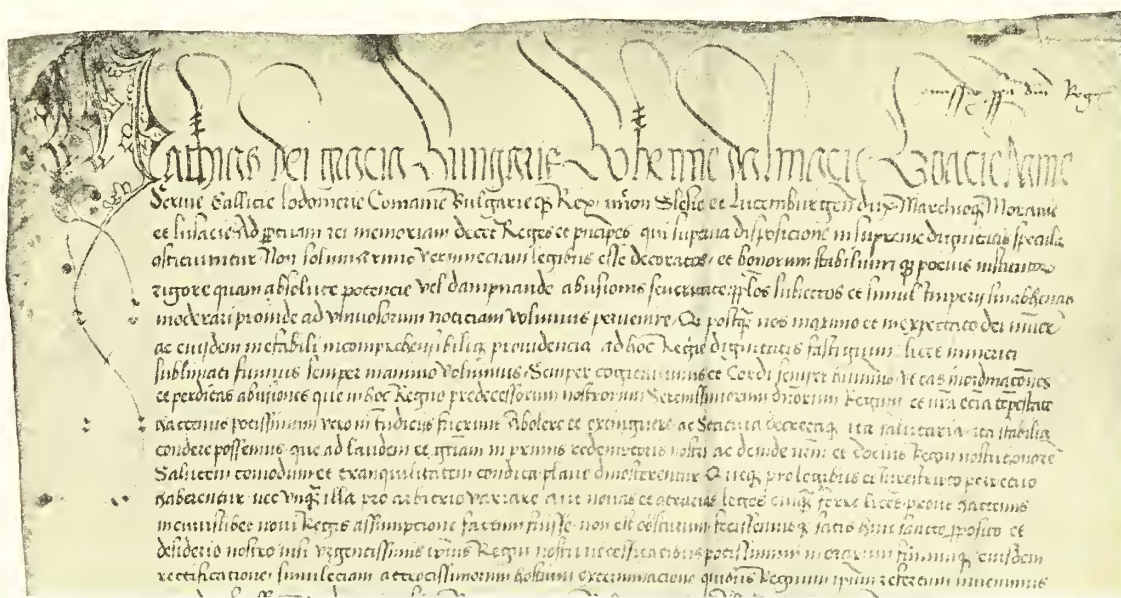 Commissio ppria dni Regis
Mathias dei gracia Hungarie Bohemie dalmacie Croacie Rame
Seruie Gallicie lodomerie Comanie Bulgarieq3 Rex necnon Slesie et Lucemburgen dux Marchioq3 Morauie
et lusacie Ad ppetuam rei memoriam decet Reges et principes qui superna disposicione in supreme dignitatis specula
constituuntur Non solum armis verumeciam legibus esse decoratos et bonorum stabilium q3 pocius institutor
rigore quam absolute potencie vel dampnande abusionis seueritate pplos subiectos et simul Imperij sui habenas
moderari proinde ad vniuersorum noticiam volumus peruenire Q postq3 nos maximo et inexpectato dei mune
ac eiusdem ineffabili incomprehensibiliq3 prouidencia ad hoc Regie dignitatis fastigium licet immeriti
sublimati fuimus semper in animo voluimus Semper cogitauimus et Cordi semper habuimus vt eas inordinacones
et perditas abusiones que in hoc Regno predecessorum nostrorum Serenissimorum dnorum Regum et nra ecia tempestate
hactenus potissimum vero in Iudicijs fuerunt Abolere et extinguere ac Statuta decretaq3 ita salutaria ita stabilia
condere possemus que ad laudem et gram in primis redemptoris nostri ac deinde vtilem et tocius Regni nostri honore
Salutem comodum et tranquilitatem condita plane dinoscerentur Queq3 pro legibus et Iure scripto perpetuo
haberentur nec vnq3 illa pro arbitrio variare aut nouas et contrarias leges cuiq3 ferre liceret prout hactenus
in cuiuslibet noui Regis assumptione factum fuisse non est constitutum fecissemusq3 satis huic sancto pposito et
desiderio nostro nisi vrgentissimis ipsius Regni nostri necessitatibus potissimum moraremur finiumq3 eiusdem
rectificatione simuleciam attrocissimorum hostium exterminacione quibus Regnum ipsum refertum inuenimus